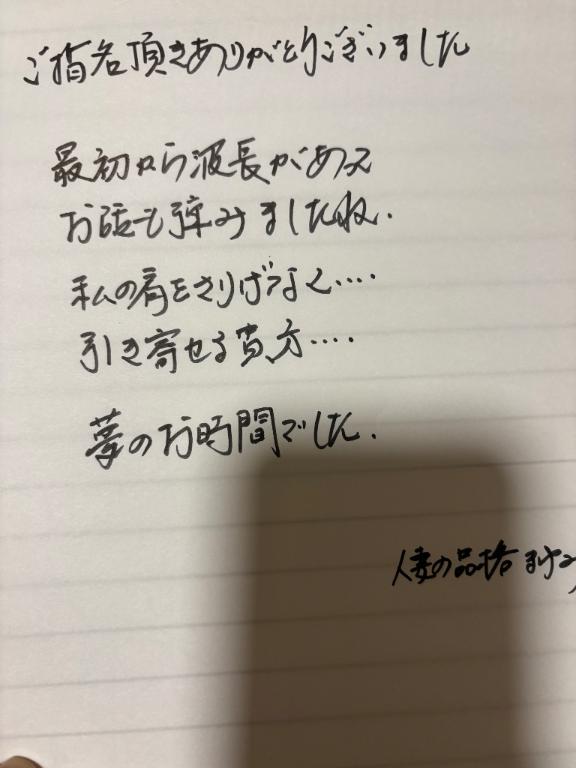 ご指名頂きありがとうございました
最初から波長があって
お話も弾みましたね.
私の肩をさりげなく‥‥
引き寄せる貴方‥‥
夢のお時間でした.
人妻の品格